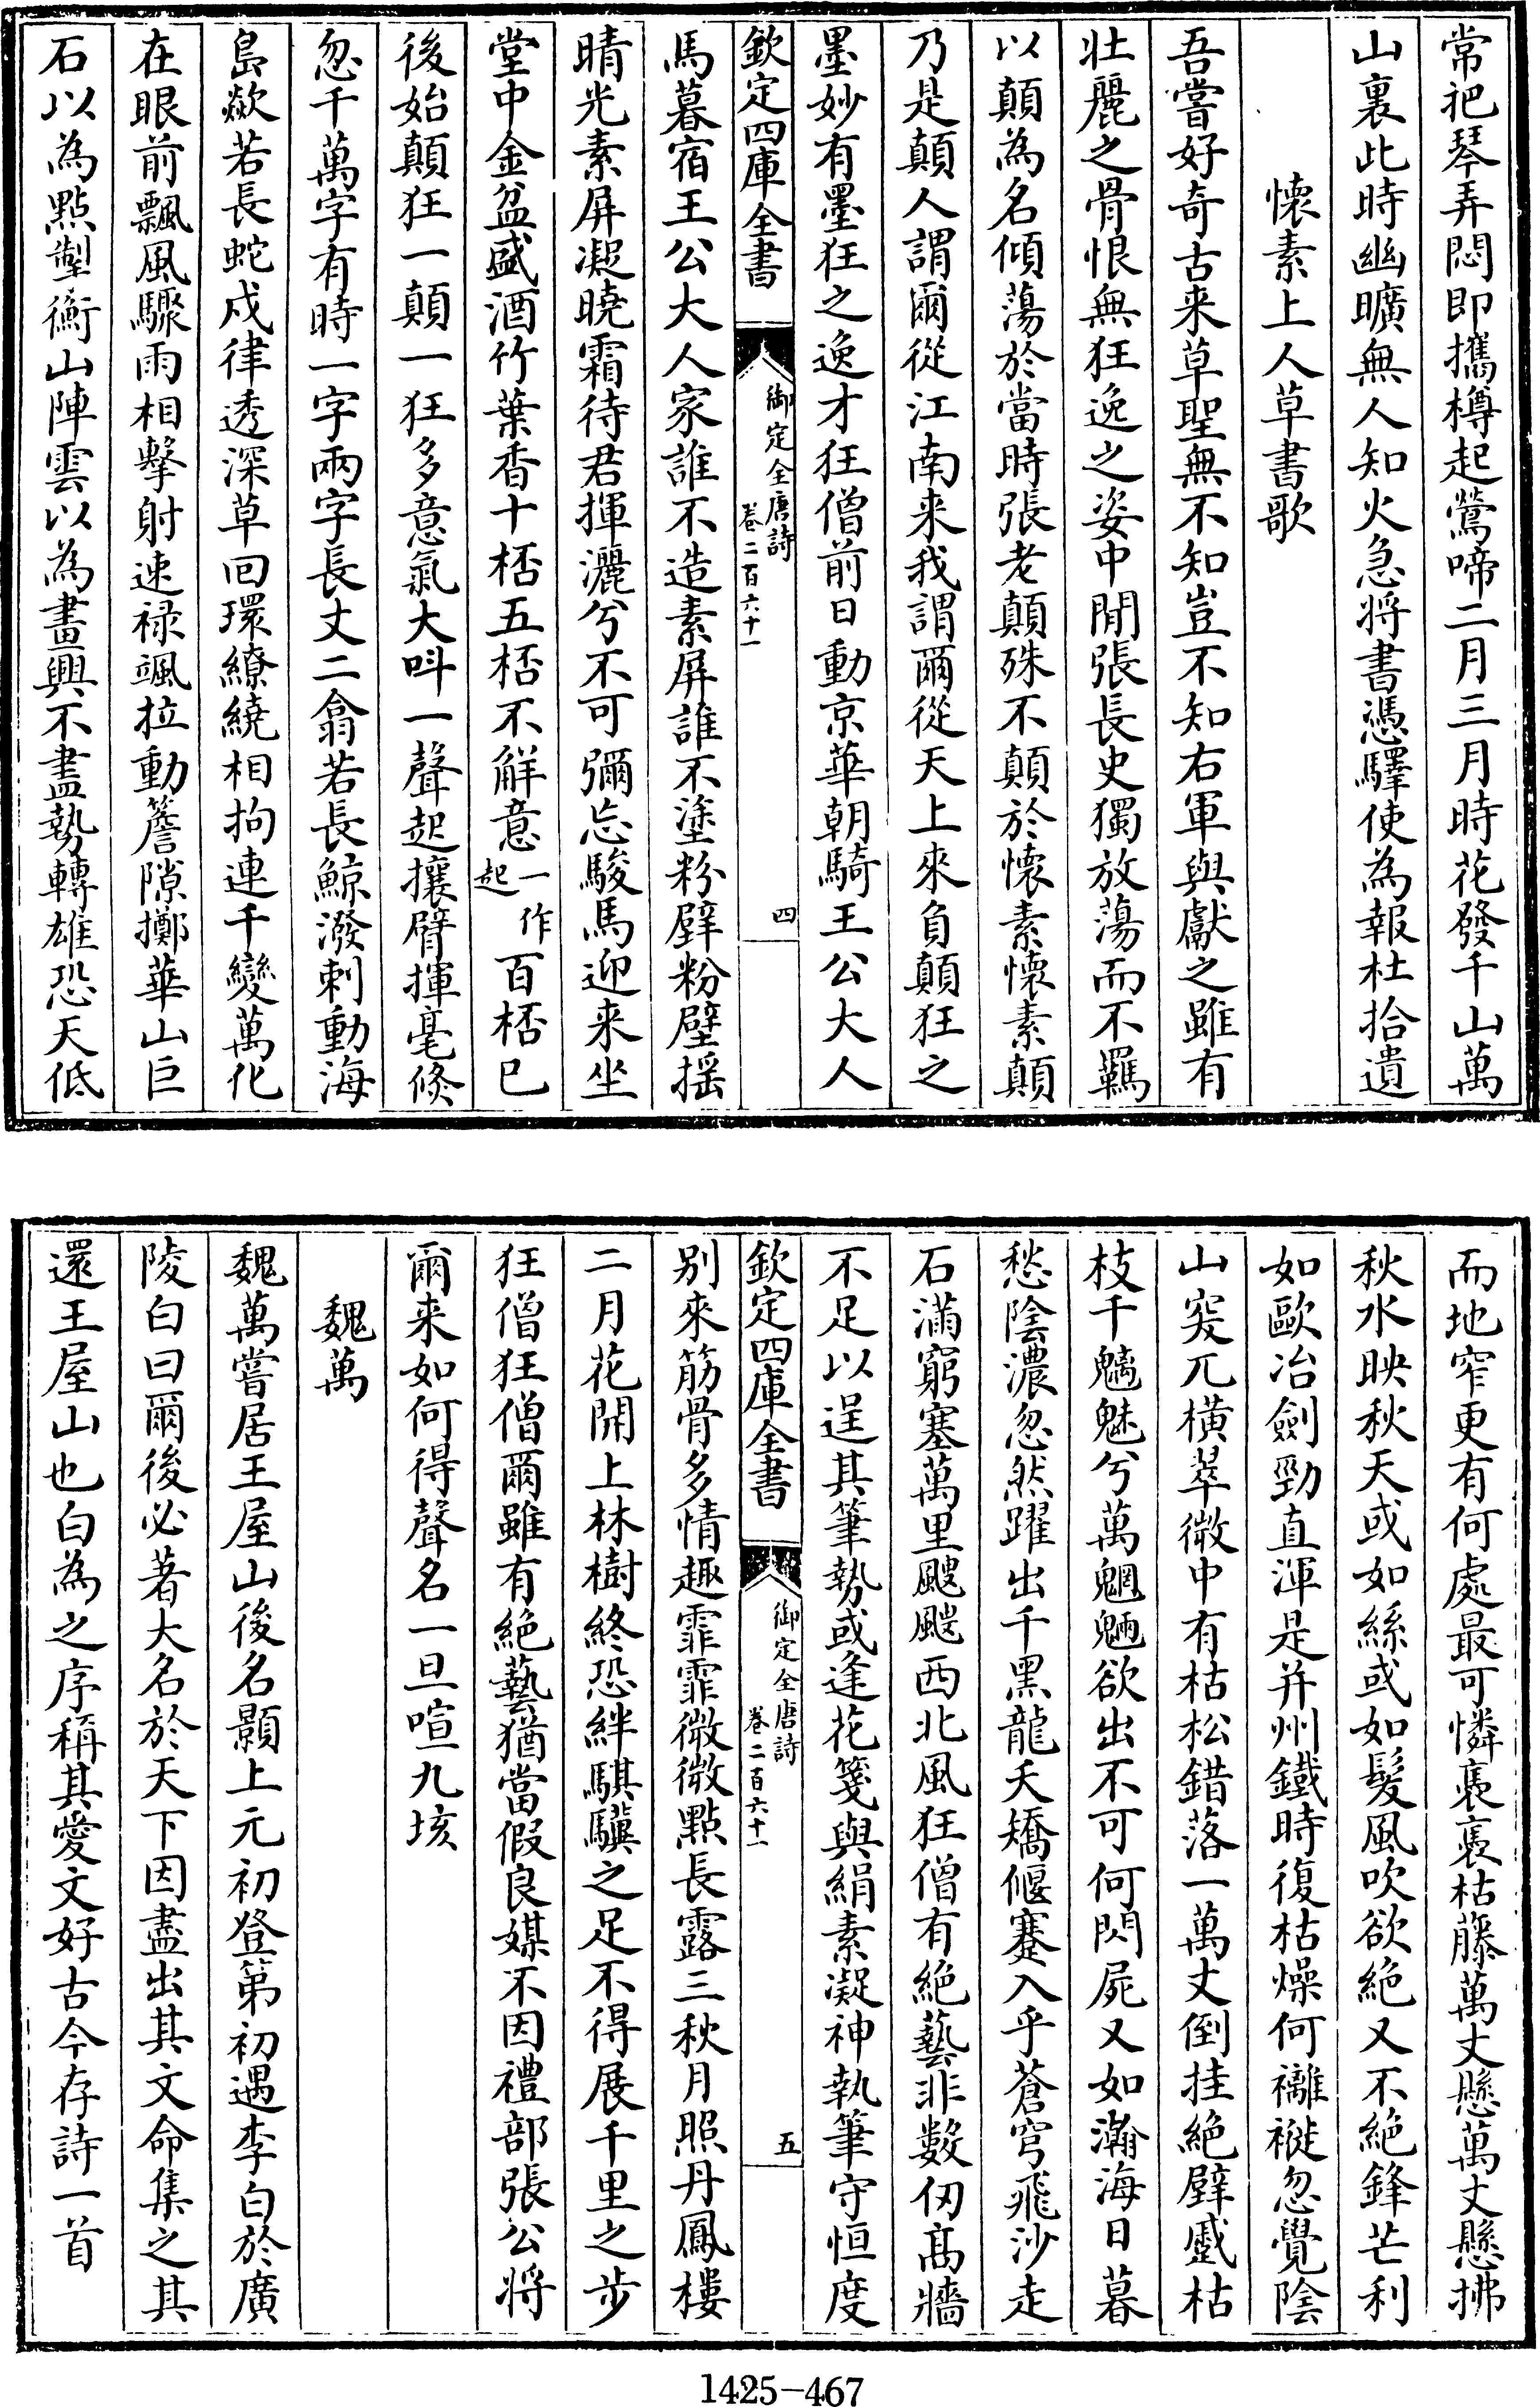 常祀琴弄悶即攜樽起鶯啼二月三月時花發千山萬
山裏此時幽曠無人知火急將書憑驛使為報杜拾遺
懷素上人草書歌
吾嘗好奇古来草聖無不知豈不知右軍與獻之雖有
壯麗之骨恨無狂逸之姿中閒張長史獨放蕩而不羈
以顛為名傾蕩於當時張老顛殊不顛於懷素懷素顛
乃是顛人謂爾從江南来我謂爾從天上來負顛狂之
墨妙有墨狂之逸才狂僧前日動京華朝騎王公大人
欽定四庫全書
御定全唐詩
卷二百六十一
四
馬暮宿王公大人家誰不造素屏誰不塗粉壁粉壁揺
晴光素屏凝曉霜待君揮灑兮不可彌忘駿馬迎来坐
堂中金盆盛酒竹葉香十桮五桮不觧意一作起百桮已
後始顛狂一顛一狂多意氣大呌一聲起攘臂揮毫倐
忽千萬字有時一字兩字長丈二翕若長鯨潑剌動海
島歘若長蛇戍律透深草回環繚繞相拘連千變萬化
在眼前飄風驟雨相擊射速禄颯拉動簷隙擲華山巨
石以為點掣衡山陣雲以為畫興不盡勢轉雄恐天低
而地窄更有何處最可憐裛裛枯藤萬丈懸萬丈懸拂
秋水映秋天或如絲或如髮風吹欲絶又不絶鋒芒利
如歐冶劍勁直渾是并州鐵時復枯燥何褵褷忽覺陰
山突兀橫翠微中有枯松錯落一萬丈倒挂絶壁蹙枯
枝千魑魅兮萬魍魎欲出不可何閃屍又如瀚海日暮
愁陰濃忽然躍出千黑龍夭矯偃蹇入乎蒼穹飛沙走
石滿窮塞萬里颼颼西北風狂僧有絶藝非數仞髙牆
不足以逞其筆勢或逢花箋與絹素凝神執筆守恒度
欽定四庫全書
御定全唐詩
卷二百六十一
五
別來筋骨多情趣霏霏微微點長露三秋月照丹鳳樓
二月花開上林樹終恐絆騏驥之足不得展千里之步
狂僧狂僧爾雖有絶藝猶當假良媒不因禮部張公將
爾来如何得聲名一旦喧九垓
魏萬
魏萬嘗居王屋山後名顥上元初登第初遇李白於廣
陵白曰爾後必著大名於天下因盡出其文命集之其
還王屋山也白為之序稱其愛文好古今存詩一首
1425-467